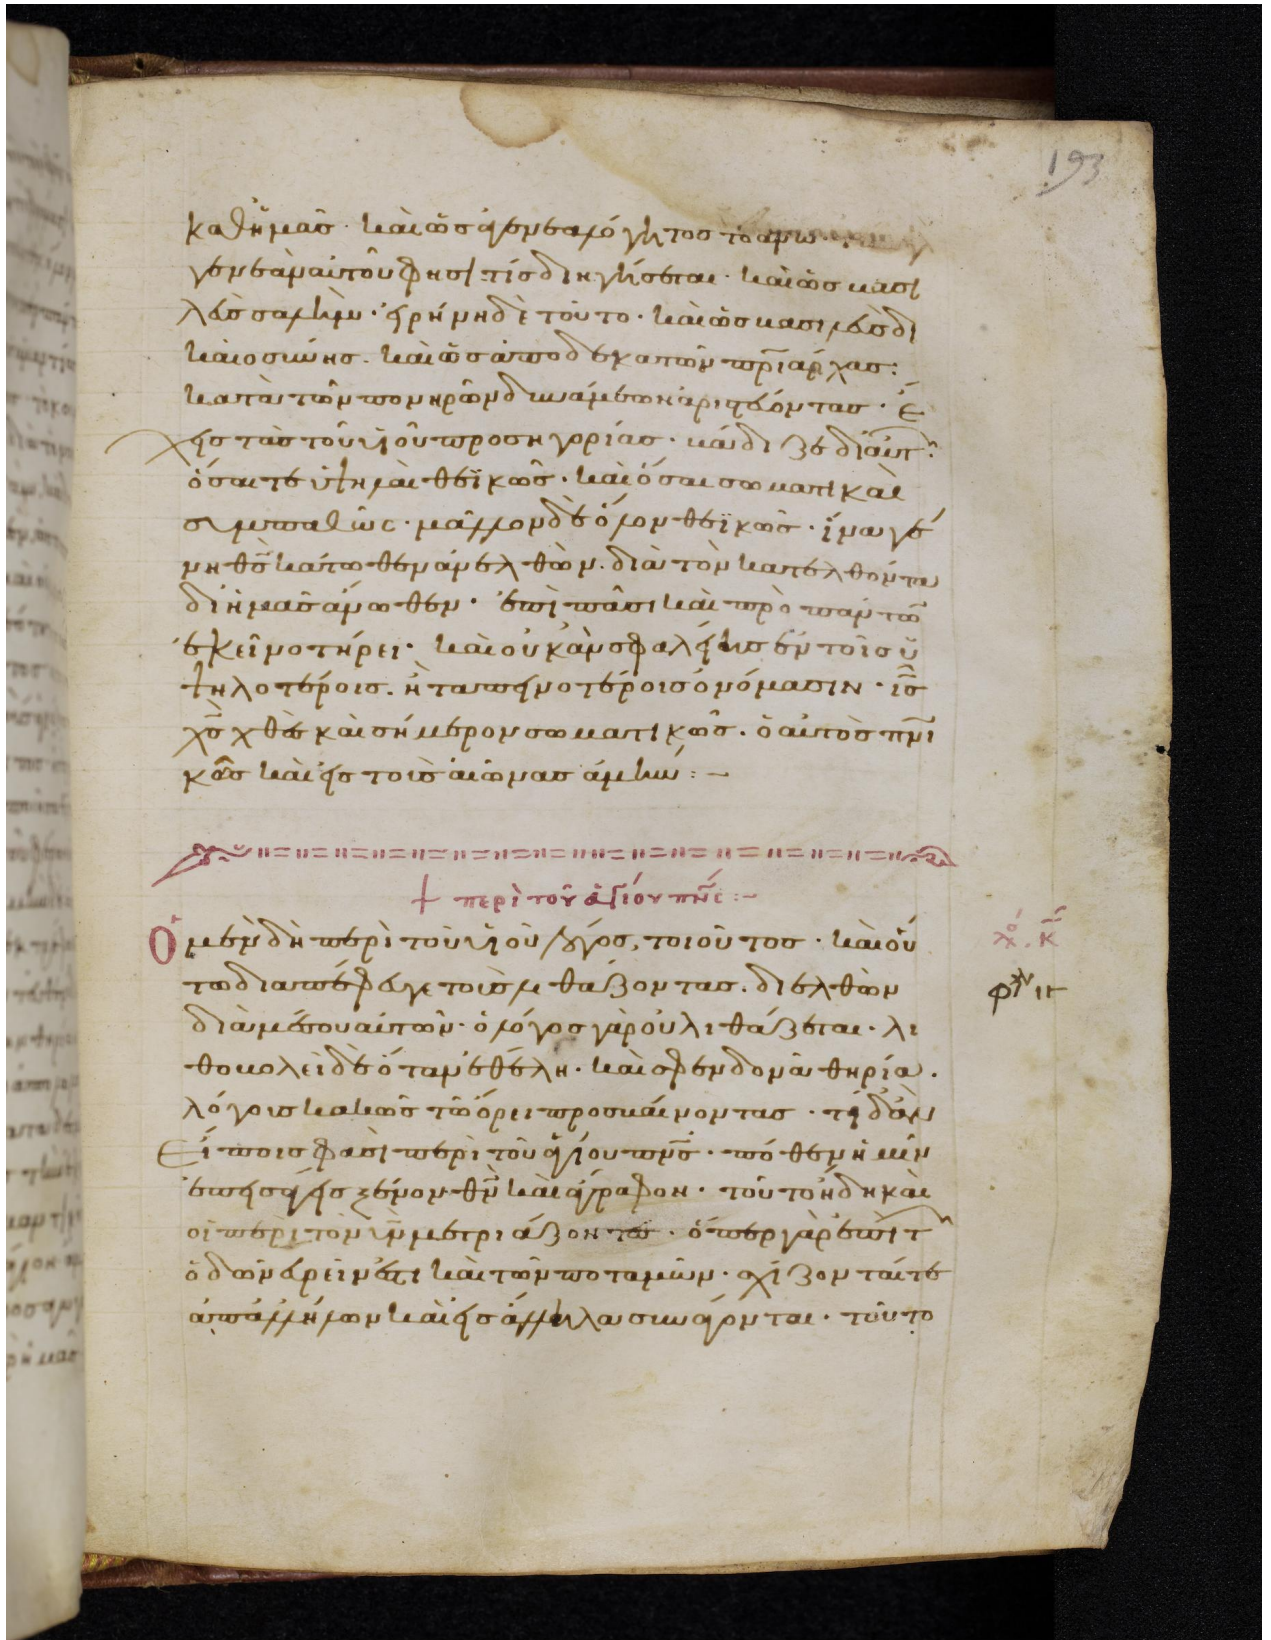 καθ' ἡμᾶς · καὶ ὡς ἀγενεαλόγητος τὸ ἄνω ·
γενεὰν αὐτοῦ φησὶ τίς διηγήσεται · καὶ ὡς βασι
λεὺς σαλὴμ · εἰρήνη δὲ τοῦτο · καὶ ὡς βασιλεὺς δι
καιοσύνης · καὶ ὡς ἀποδεκατῶν πριάρχας :
κατὰ τῶν πονηρῶν δυνάμεων ἀριστεύοντας · Ἔ
χεις τὰς τοῦ υἱοῦ προσηγορίας · βάδιζε δι' αὐτ
ὅσαι τε ὑψηλαὶ θεϊκῶς · καὶ ὅσαι σωματικαὶ
συμπαθῶς · μᾶλλον δὲ ὅλον θεϊκῶς · ἵνα γέ
νη θς κάτωθεν ἀνελθὼν · διὰ τὸν κατελθόντα
δι' ἡμᾶς ἄνωθεν · ἐπὶ πᾶσι καὶ πρὸ πάντω
ἐκεῖνο τήρει · καὶ οὐκ ἂν σφαλείης ἐν τοῖς ὑ
ψηλοτέροις · ἢ ταπεινοτέροις ὀνόμασιν · ις
χς χθὲς καὶ σήμερον σωματικῶς · ὁ αὐτὸς πνι
κῶς καὶ εἰς τοὺς αἰῶνας ἀμήν : –
+ περὶ τοῦ ἁγίου πνς : –
Ὁ μὲν δὴ περὶ τοῦ υἱοῦ λόγος, τοιοῦτος · καὶ οὕ
τω διαπέφευγε τοὺς λιθάζοντας · διελθὼν
διὰ μέσου αὐτῶν · ὁ λόγος γὰρ οὐ λιθάζεται · λι
θοβολεῖ δὲ ὅταν ἐθέλη · καὶ σφενδονᾶ θηρία ·
λόγους κακῶς τῶ ὄρει προσβαίνοντας · τί δ' ἂν
Εἴποις φασὶ περὶ τοῦ ἁγίου πνς · πόθεν ἡμῖν
ἐπεισάγεις ξένον θν καὶ ἄγραφον · τοῦτο ἤδη καὶ
οἱ περὶ τὸν υν μετριάζοντες · ὅπερ γὰρ ἐπὶ τ
ὁδῶν εὑρεῖν ἔστι καὶ τῶν ποταμῶν · σχίζονταί τε
ἀπαλλήλων καὶ εἰς ἄλληλα συνάγονται · τοῦτο